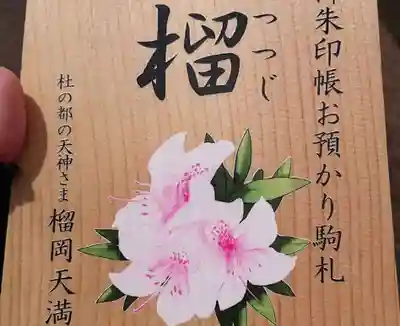 御朱印帳お預かり駒札
つつじ
榴
杜の都の天神さま
榴岡天満